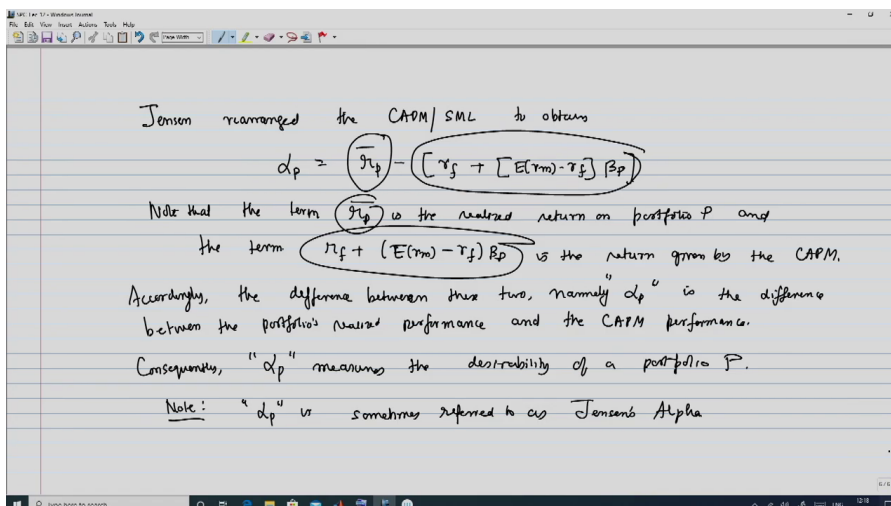 SPC Lec 17 - Windows Journal
File Edit View Insert Actions Tools Help
Page Width
Jensen rearranged the CAPM/SML to obtain
αp = r̄p - [rf + [E(rm) - rf] βp]
Note that the term r̄p is the realized return on portfolio P and
the term rf + (E(rm) - rf) βp is the return given by the CAPM.
Accordingly, the difference between these two, namely "αp" is the difference
between the portfolio's realized performance and the CAPM performance.
Consequently, "αp" measures the desirability of a portfolio P.
Note: "αp" is sometimes referred to as Jensen's Alpha
6/6
Type here to search
ENG
12:18